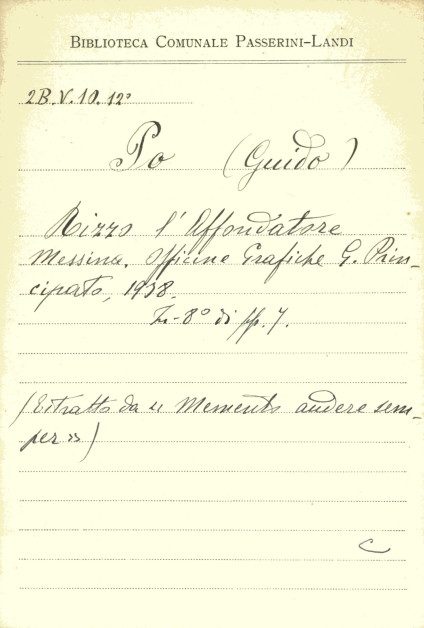 BIBLIOTECA COMUNALE PASSERINI-LANDI
2B.V.10.12°
Po (Guido)
Rizzo l'Affondatore
Messina. Officine Grafiche G. Prin-
cipato, 1938.
In-8° di pp. 7.
(Estratto da « Memento audere sem-
per »)
C